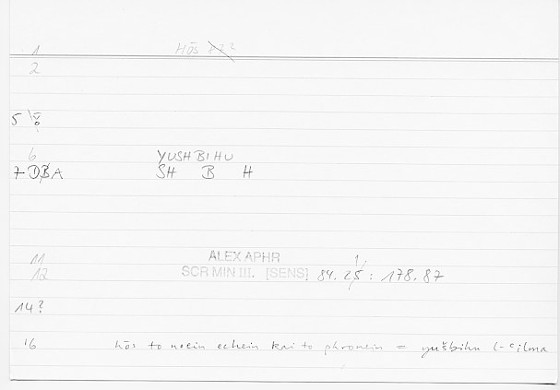 1 Hōs
2
5
6 YUSHBIHU
7 DBA SH B H
11 ALEX APHR 1,
12 SCR MIN III. [SENS] 84.25 : 178.87
14?
16 hōs to noein echein kai to phronein = yušbihu (-ʿilma